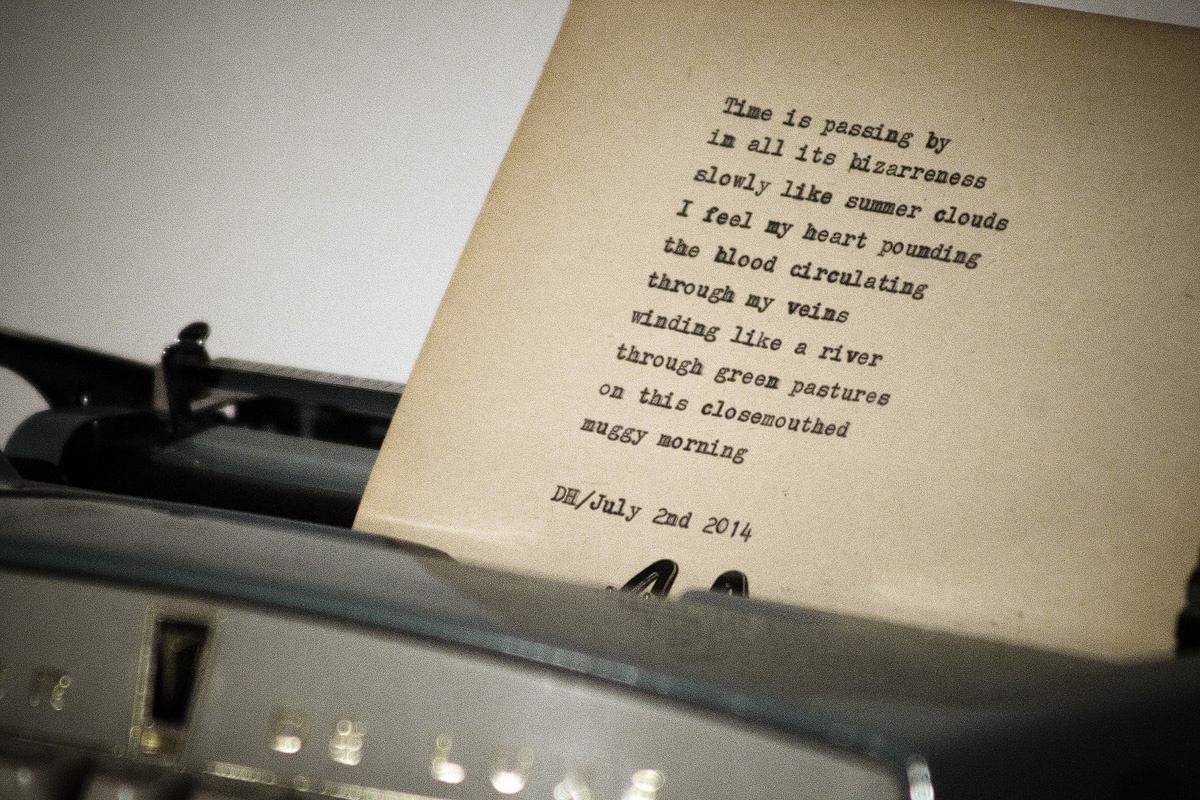 Time is passing by
in all its bizarreness
slowly like summer clouds
I feel my heart pounding
the blood circulating
through my veins
winding like a river
through green pastures
on this closemouthed
muggy morning
DH/July 2nd 2014